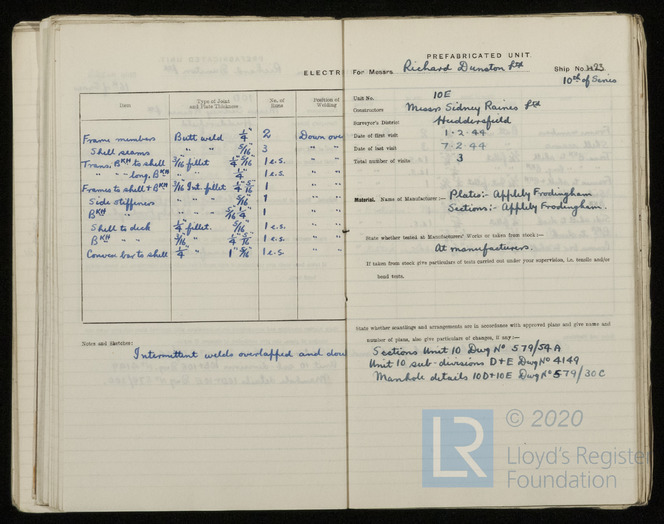 ELECTR
Item Type of Joint and Plate Thickness No. of Runs Position of Welding
Frame members Butt weld 1/4" 2 Down
Shell seams " " 5/16" 3 " "
Trans. BKH to shell 3/16 fillet 1/4" 5/16" 1 e.s. " "
" " - long. BKH " " 1/4" 1 e.s. " "
Frames to shell + BKH 3/16 Int. fillet 1/4" 5/16" 1 " "
Side stiffeners " " 5/16" 1 " "
BKH " " " 5/16" 1/4" 1 " "
Shell to deck 1/4" fillet. 5/16" 1 e.s. " "
BKH " " 3/16" " 1/4" 5/16" 1 e.s. " "
Convex bar to shell 1/4" " 1" 5/16" 1 e.s. " "
Notes and Sketches:
Intermittent welds overlapped and
PREFABRICATED UNIT.
For Messrs. Richard Dunston Ltd Ship No.
10th of Series
Unit No. 10E
Constructors Messrs Sidney Raines Ltd
Surveyor's District Huddersfield
Date of first visit 1-2-44
Date of last visit 7-2-44
Total number of visits 3
Material. Name of Manufacturer :— Plates:- Appleby Frodingham
Sections:- Appleby Frodingham.
State whether tested at Manufacturers' Works or taken from stock :—
At manufacturers.
If taken from stock give particulars of tests carried out under your supervision, i.e. tensile and/or
bend tests.
State whether scantlings and arrangements are in accordance with approved plans and give name and
number of plans, also give particulars of changes, if any :—
Sections Unit 10 Dwg No 579/54A
Unit 10 sub-divisions D+E Dwg No 4149
Manhole details 10D+10E Dwg No 579/30C
© 2020
LR
Lloyd's Register
Foundation